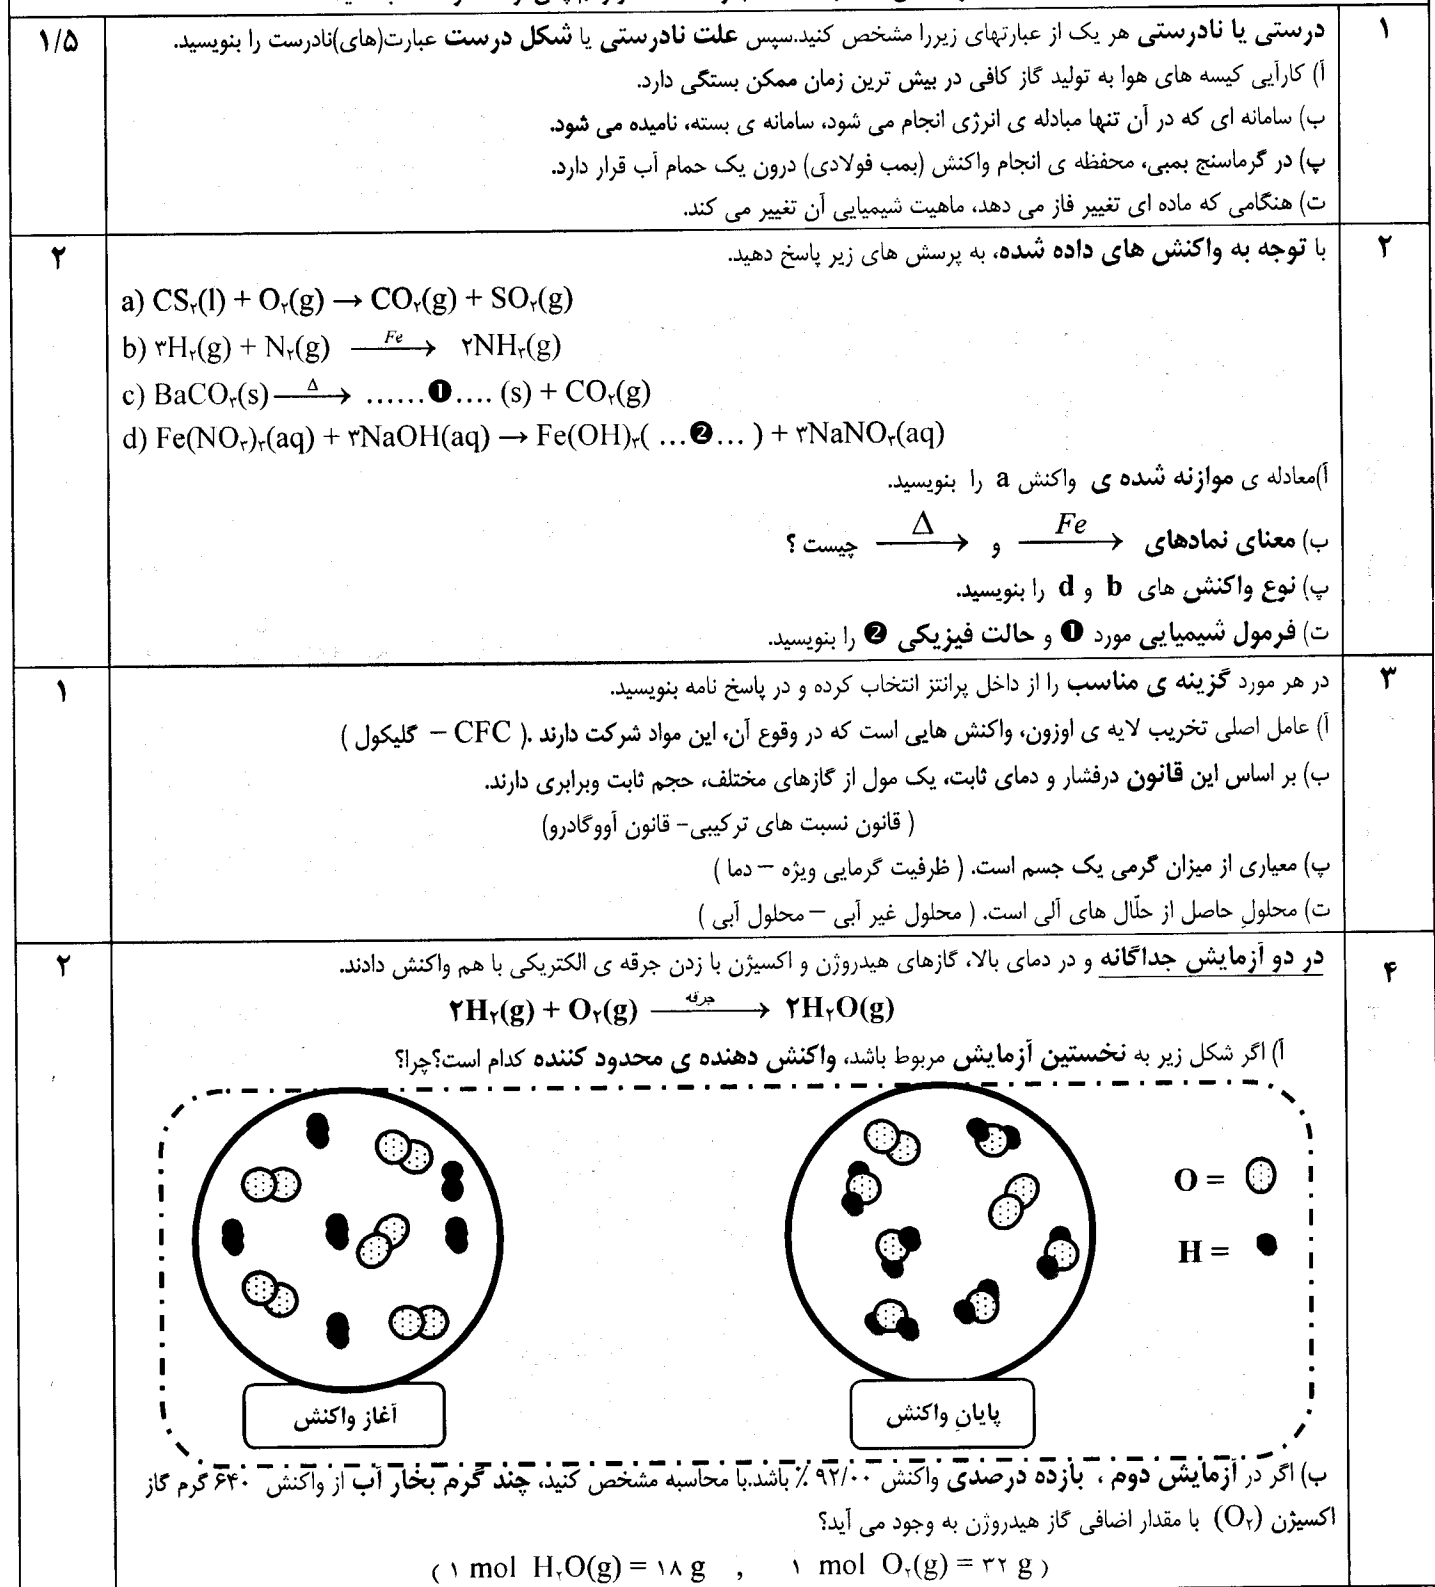 ۱
درستی یا نادرستی هر یک از عبارتهای زیررا مشخص کنید.سپس علت نادرستی یا شکل درست عبارت(های)نادرست را بنویسید.
۱/۵
آ) کارآیی کیسه های هوا به تولید گاز کافی در بیش ترین زمان ممکن بستگی دارد.
ب) سامانه ای که در آن تنها مبادله ی انرژی انجام می شود، سامانه ی بسته، نامیده می شود.
پ) در گرماسنج بمبی، محفظه ی انجام واکنش (بمب فولادی) درون یک حمام آب قرار دارد.
ت) هنگامی که ماده ای تغییر فاز می دهد، ماهیت شیمیایی آن تغییر می کند.
۲
با توجه به واکنش های داده شده، به پرسش های زیر پاسخ دهید.
۲
a) CS۲(l) + O۲(g) → CO۲(g) + SO۲(g)
b) ۳H۲(g) + N۲(g) —Fe→ ۲NH۳(g)
c) BaCO۳(s) —Δ→ ......❶.... (s) + CO۲(g)
d) Fe(NO۳)۳(aq) + ۳NaOH(aq) → Fe(OH)۳( ...❷... ) + ۳NaNO۳(aq)
آ)معادله ی موازنه شده ی واکنش a را بنویسید.
ب) معنای نمادهای —Fe→ و —Δ→ چیست ؟
پ) نوع واکنش های b و d را بنویسید.
ت) فرمول شیمیایی مورد ❶ و حالت فیزیکی ❷ را بنویسید.
۳
در هر مورد گزینه ی مناسب را از داخل پرانتز انتخاب کرده و در پاسخ نامه بنویسید.
۱
آ) عامل اصلی تخریب لایه ی اوزون، واکنش هایی است که در وقوع آن، این مواد شرکت دارند .( CFC – گلیکول )
ب) بر اساس این قانون درفشار و دمای ثابت، یک مول از گازهای مختلف، حجم ثابت وبرابری دارند.
( قانون نسبت های ترکیبی- قانون آووگادرو)
پ) معیاری از میزان گرمی یک جسم است. ( ظرفیت گرمایی ویژه – دما )
ت) محلولِ حاصل از حلّال های آلی است. ( محلول غیر آبی – محلول آبی )
۴
در دو آزمایش جداگانه و در دمای بالا، گازهای هیدروژن و اکسیژن با زدن جرقه ی الکتریکی با هم واکنش دادند.
۲
۲H۲(g) + O۲(g) —جرقه→ ۲H۲O(g)
آ) اگر شکل زیر به نخستین آزمایش مربوط باشد، واکنش دهنده ی محدود کننده کدام است؟چرا؟
O =
H =
پایانِ واکنش
آغاز واکنش
ب) اگر در آزمایش دوم ، بازده درصدی واکنش ۹۲/۰۰ ٪ باشد.با محاسبه مشخص کنید، چند گرم بخار آب از واکنش ۶۴۰ گرم گاز
اکسیژن (O۲) با مقدار اضافی گاز هیدروژن به وجود می آید؟
( ۱ mol H۲O(g) = ۱۸ g , ۱ mol O۲(g) = ۳۲ g )